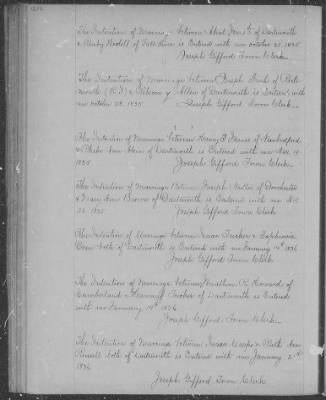 The Intention of Marriage between Abial Jones of Dartmouth
& Ruby Wordell of Fall River is Entered with me October 25, 1835
Joseph Gifford Town Clerk
The Intention of Marriage between Joseph Bush of Ports
mouth (R.I.) & Allen of Dartmouth is Entered with
me October 28, 1835 Joseph Gifford Town Clerk
The Intention of Marriage between Henry of New Bedford
& Phebe Ann of Dartmouth is Entered with me Nov. 14
1835 Joseph Gifford Town Clerk
The Intention of Marriage Between Joseph of Dorchester
& Mary Ann Brown of Dartmouth is Entered with me
1835 Joseph Gifford Town Clerk
The Intention of Marriage between Isaac Tucker & Sophronia
both of Dartmouth is Entered with me January 14th 1836
Joseph Gifford Town Clerk
The Intention of Marriage between Jonathan R. Howard of
Cumberland & Tucker of Dartmouth is Entered
with me January 14th 1836
Joseph Gifford Town Clerk
The Intention of Marriage between Isaac & Ruth Ann
Russell both of Dartmouth is Entered with me January
1836
Joseph Gifford Town Clerk